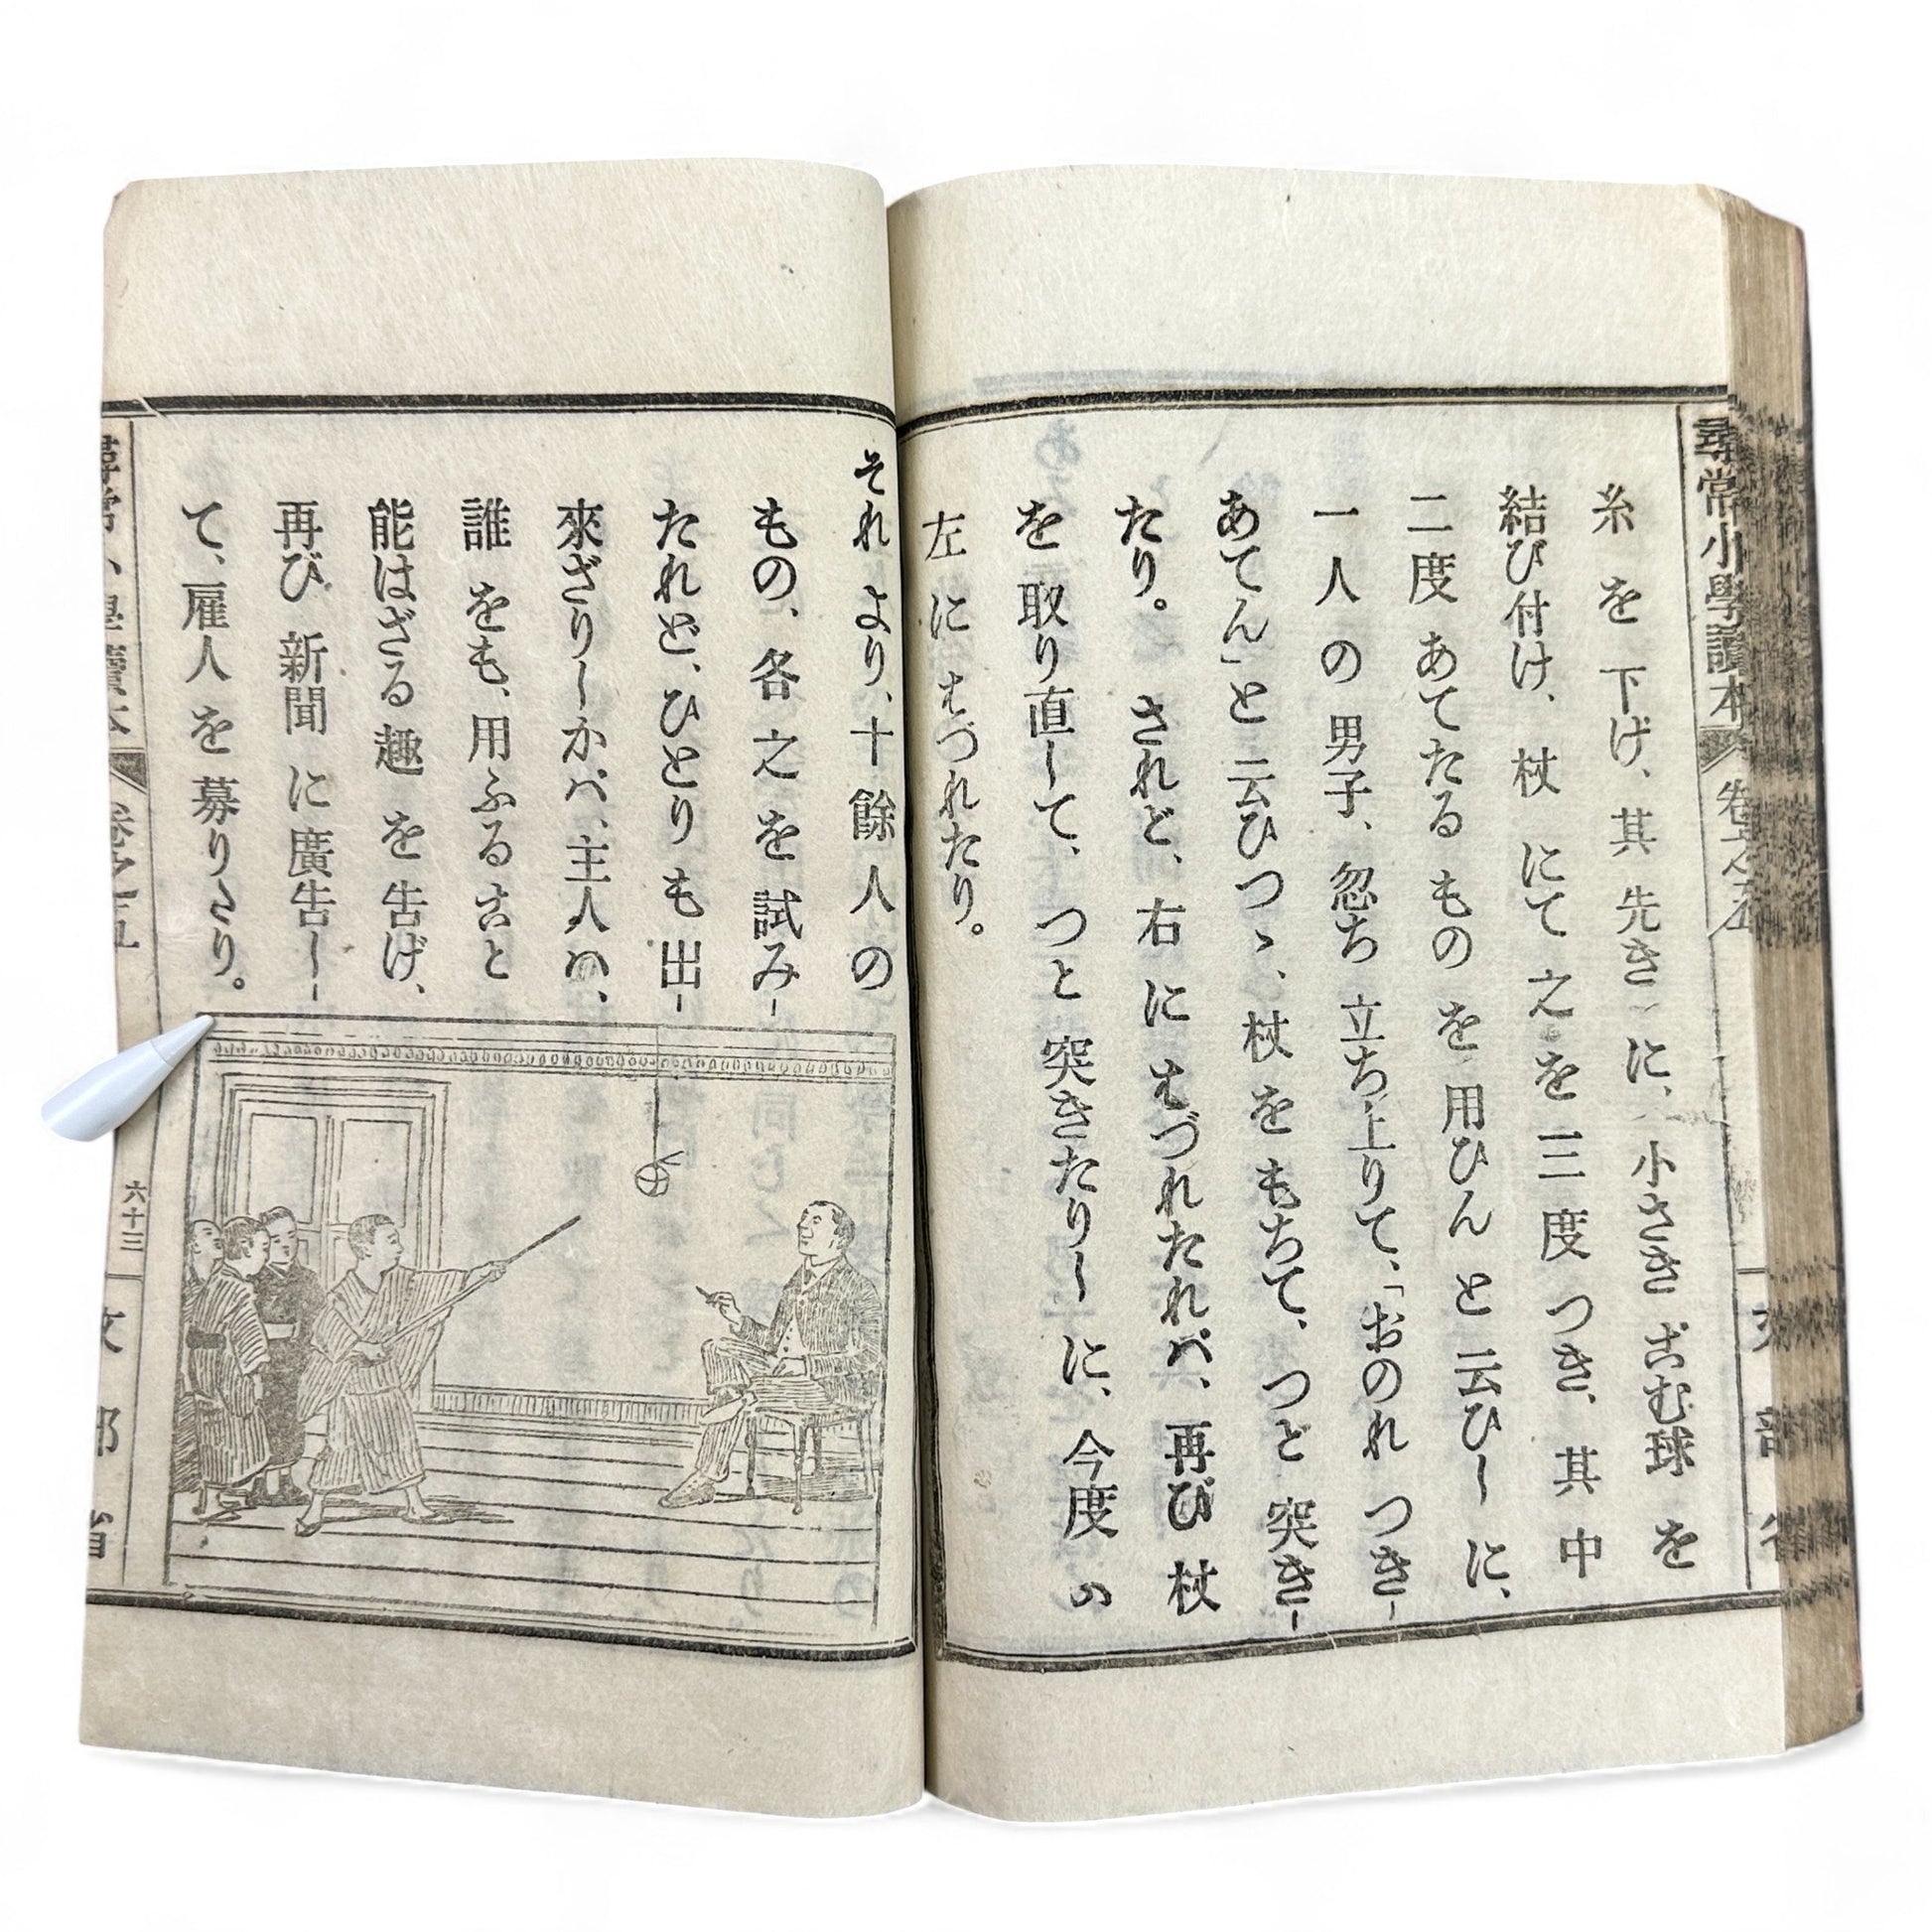 尋常小學讀本 卷之五 文部省
糸を下げ、其先きに、小さきごむ球を
結び付け、杖にて之を三度つき、其中
二度あてたるものを用ひんと云ひしに、
一人の男子、忽ち立ち上りて、「おのれつき-
あてん」と云ひつゝ、杖をもちて、つと突き-
たり。されど、右にはづれたれバ、再び杖
を取り直して、つと突きたりしに、今度ハ
左にはづれたり。
それより、十餘人の
もの、各之を試み-
たれど、ひとりも出-
來ざりしかバ、主人ハ、
誰をも、用ふること
能はざる趣を告げ、
再び新聞に廣告し-
て、雇人を募りたり。
尋常小學讀本 卷之五 六十三 文部省